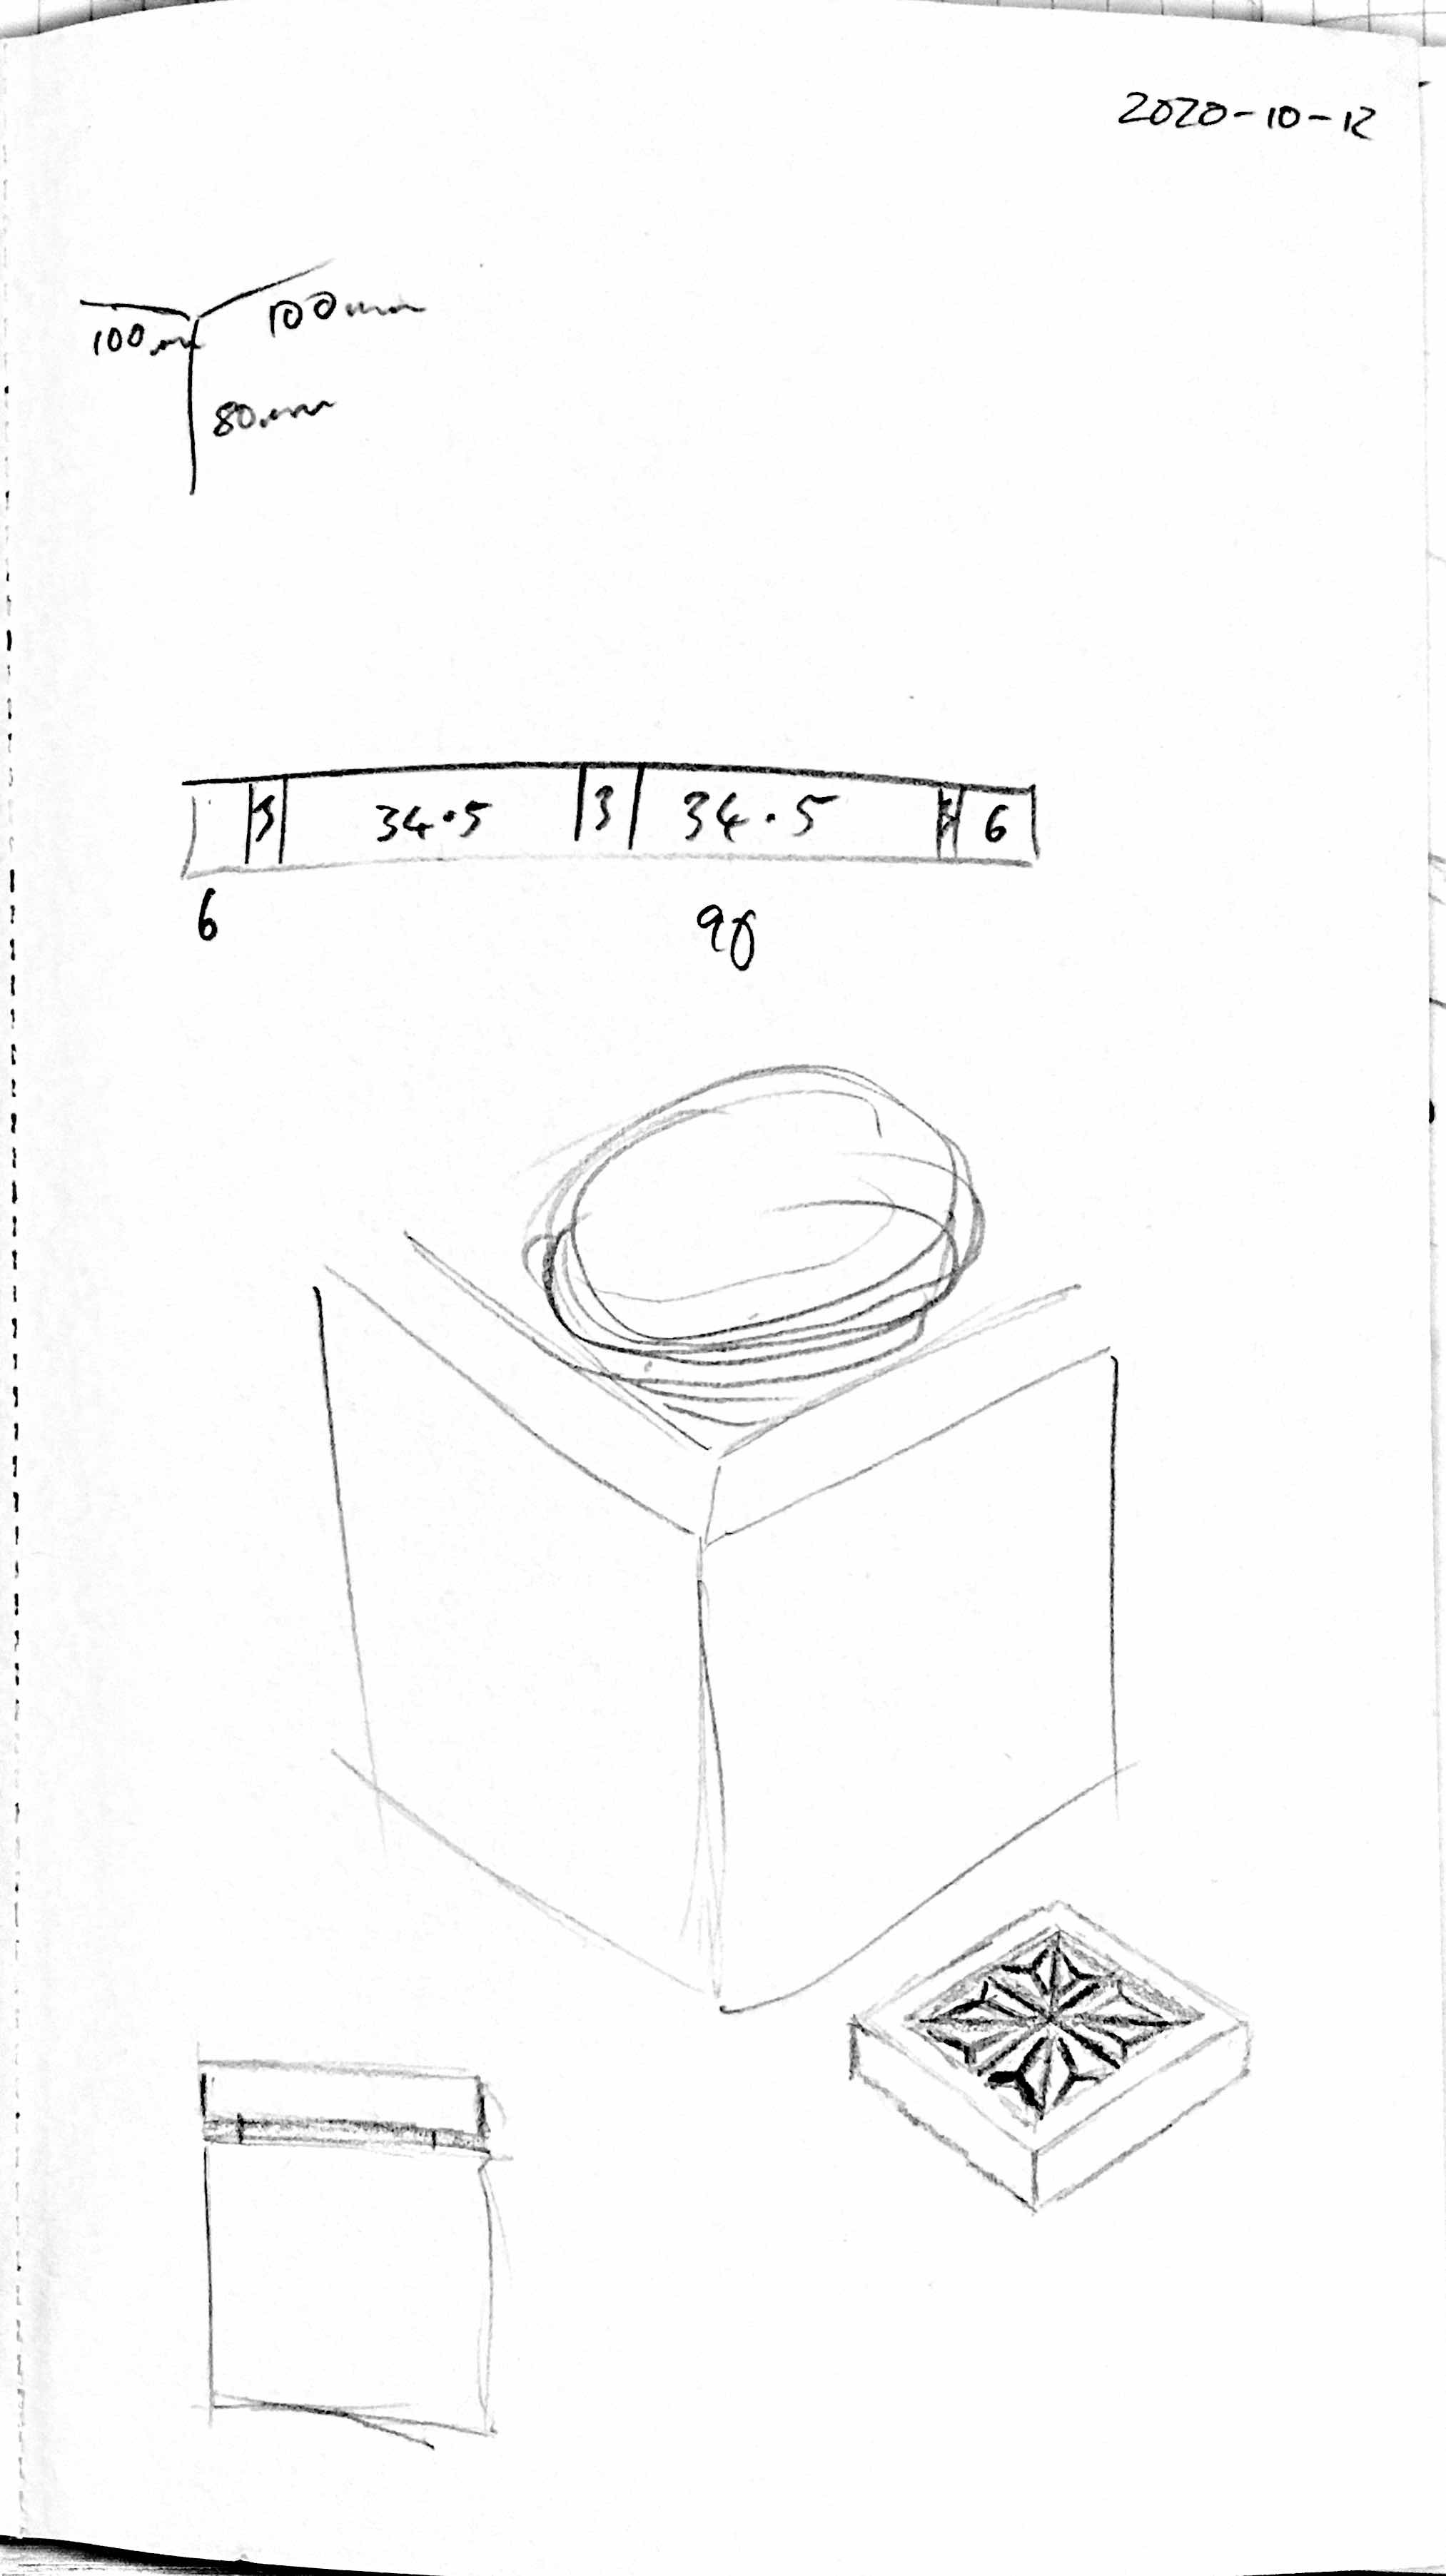 2020-10-12
100mm
100mm
80mm
3 34.5 3 34.5 3 6
6 90